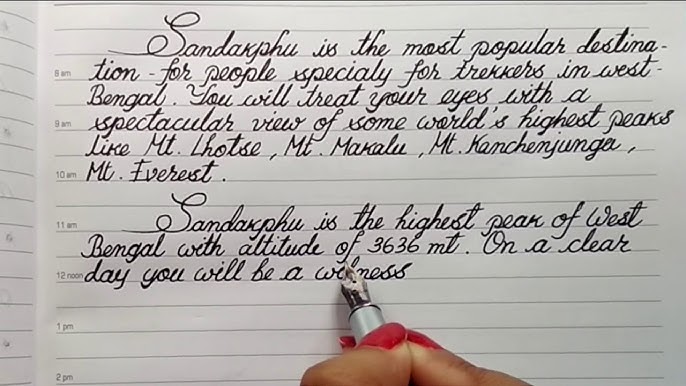 Sandakphu is the most popular destina-
8 am tion - for people specialy for trekkers in west-
Bengal. You will treat your eyes with a
9 am spectacular view of some world's highest peaks
like Mt. Lhotse, Mt. Makalu, Mt. Kanchenjunga,
10 am Mt. Everest.
11 am Sandakphu is the highest peak of West
Bengal with altitude of 3636 mt. On a clear
12 noon day you will be a witness
1 pm
2 pm